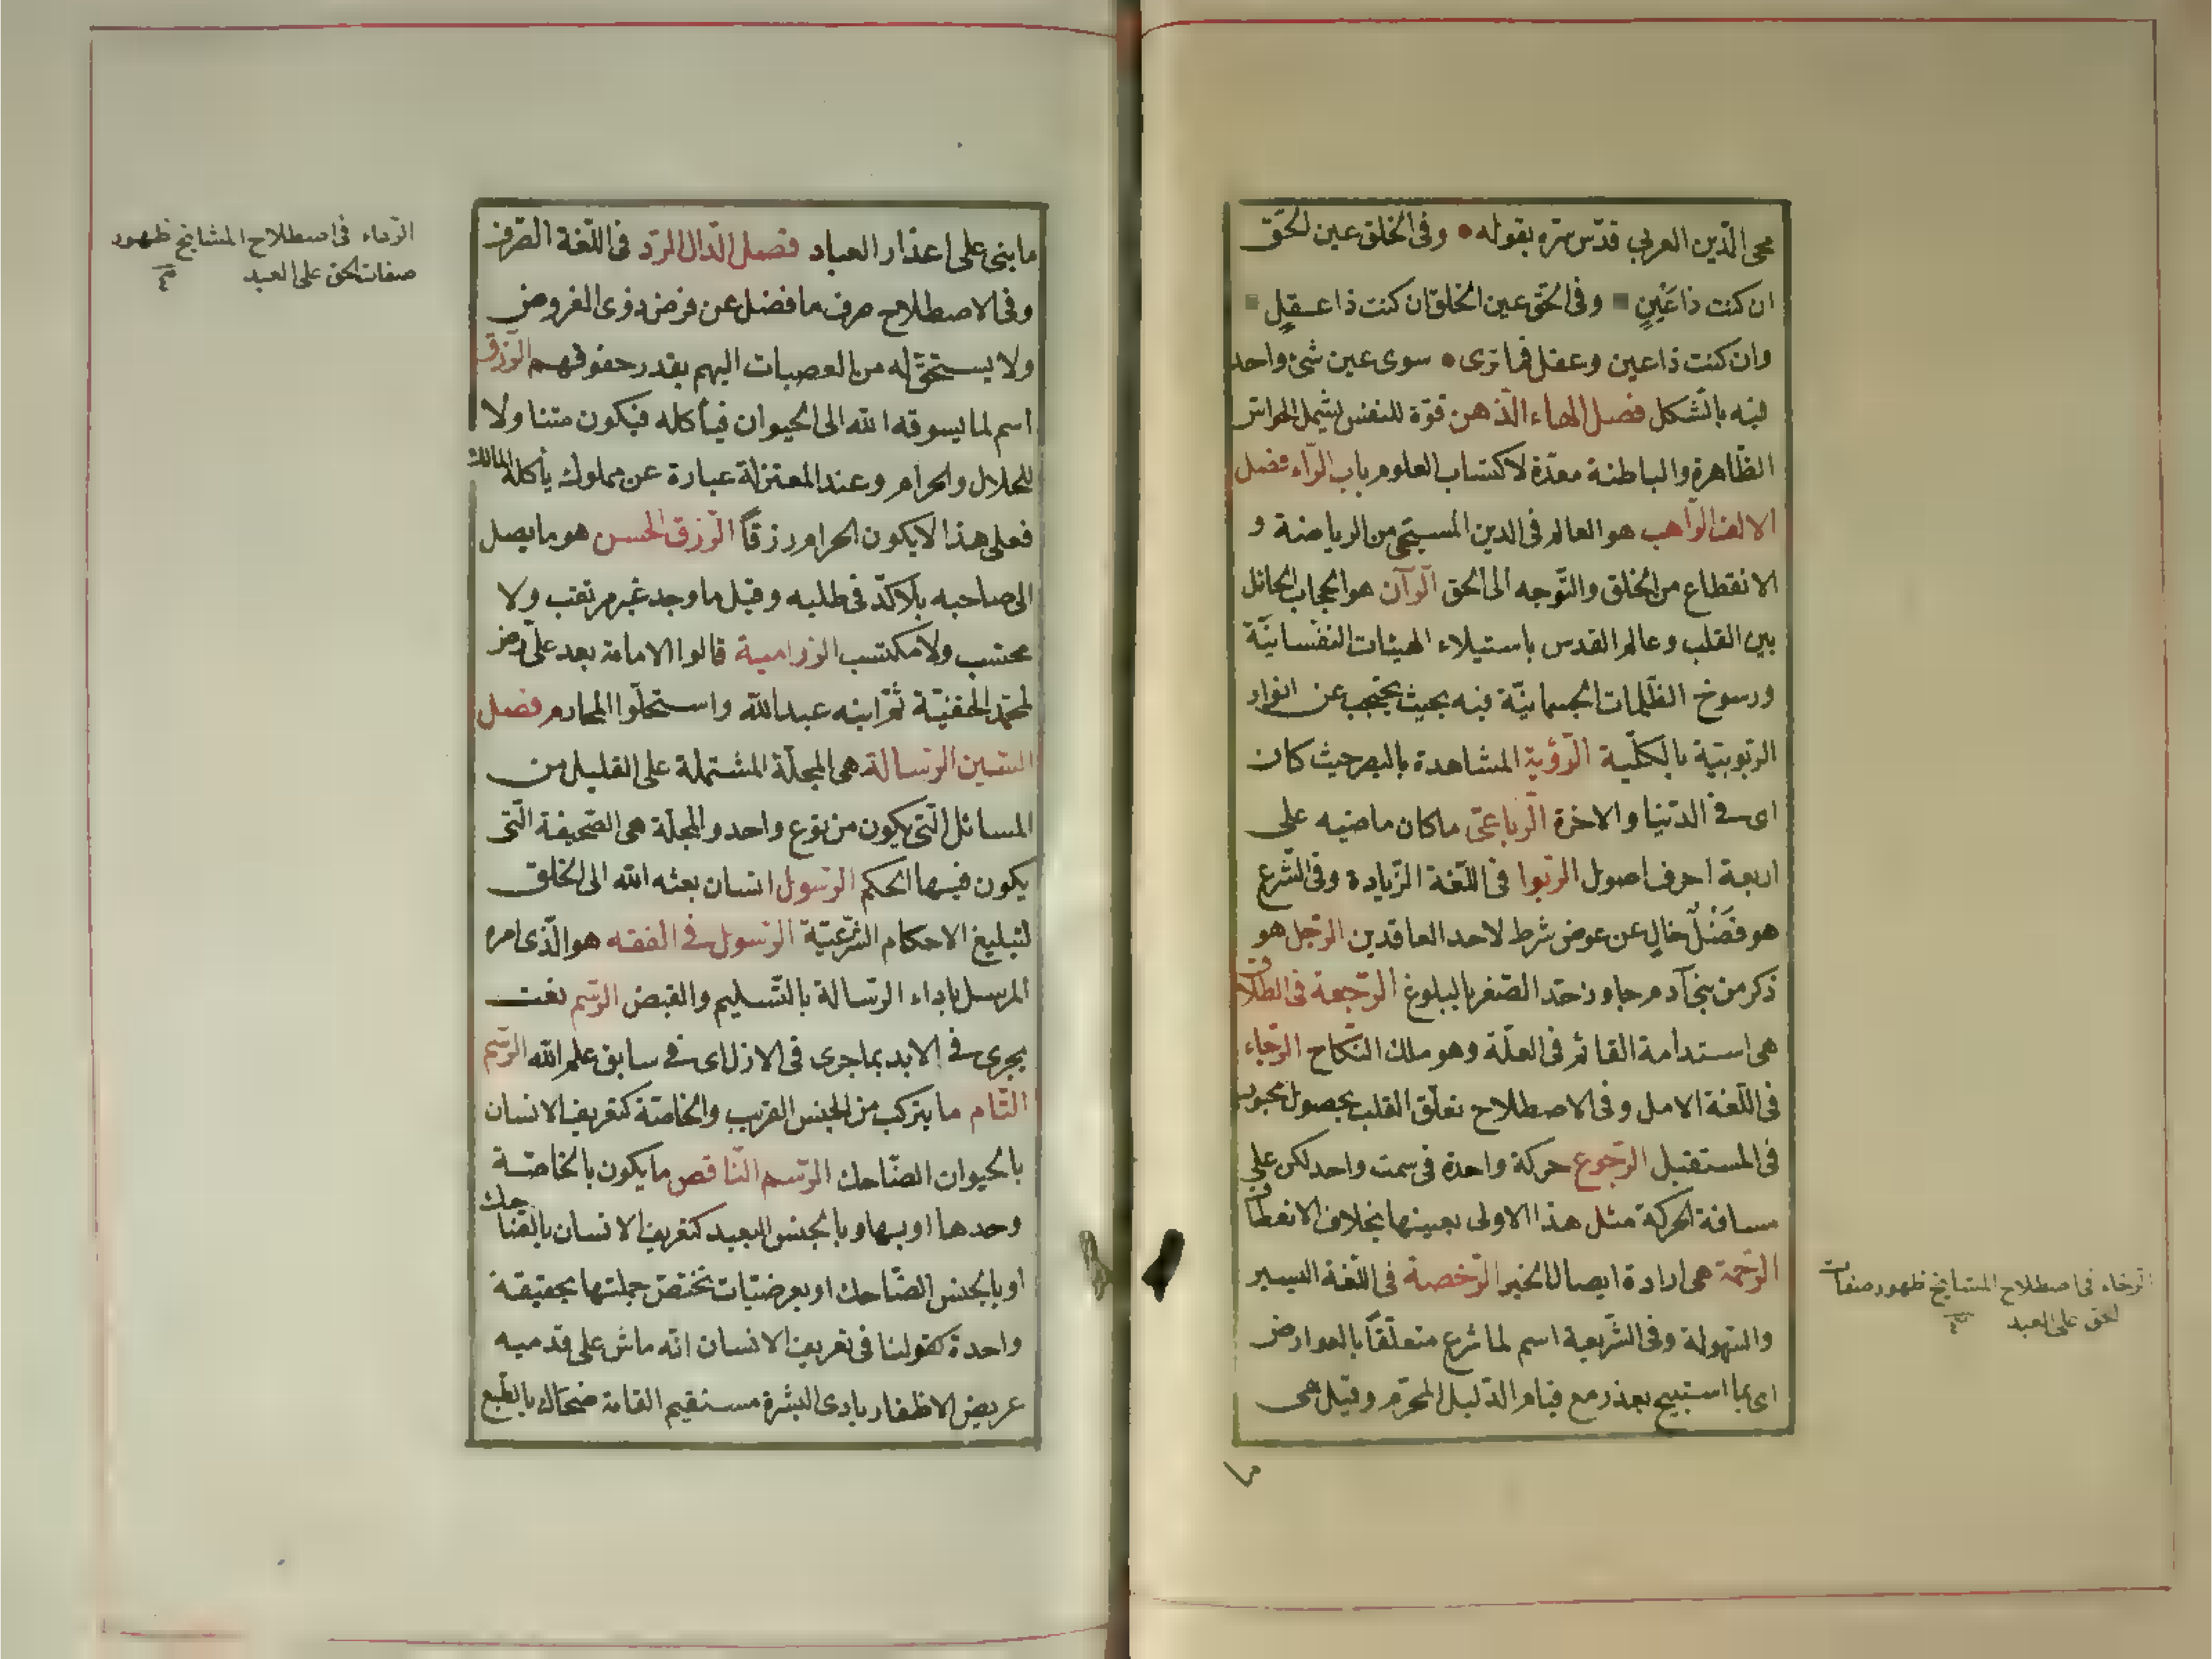 محى الدّين العربي قدّس سرّه بقوله • وفى الخلق عين الحقّ
ان كنت ذا عَيْنٍ وفى الحقّ عين الخلق ان كنت ذا عقلٍ
وان كنت ذا عين وعقل فما ترى • سوى عين شئ واحد
فيه بالشّكل فصل الهاء الذّهن قوّة للنفس يشمل الحواس
الظّاهرة والباطنة معدّة لاكتساب العلوم باب الرّاء فصل
الالف الرّاهب هو العالم فى الدين المسيحى من الرياضة و
الانقطاع من الخلق والتّوجه الى الحق الرّان هو الحجاب الحائل
بين القلب وعالم القدس باستيلاء الهيئات النفسانيّة
ورسوخ الظّلمات الجسمانيّة فيه بحيث يحتجب عن انوار
الرّبوبيّة بالكلّية الرّؤية المشاهدة بالبصر حيث كان
اى فى الدّنيا والاخرة الرّباعىّ ماكان ماضيه على
اربعة احرف اصول الرّبوا فى اللّغة الزّيادة وفى الشّرع
هو فَضْلٌ خالٍ عن عوض شرط لاحد العاقدين الرّجل هو
ذكر من بنى آدم جاوز حدّ الصّغر بالبلوغ الرّجعة فى الطلاق
هى استدامة القائم فى العدّة وهو ملك النّكاح الرّجاء
فى اللّغة الامل وفى الاصطلاح تعلّق القلب بحصول محبوب
فى المستقبل الرّجوع حركة واحدة فى سمت واحد لكن على
مسافة الحركة مثل هذا الاولى بعينها بخلاف الانعطاف
الرّحمة هى ارادة ايصال الخير الرّخصة فى اللّغة اليسير
والسّهولة وفى الشّريعة اسم لما شرع متعلّقاً بالعوارض
اى بما استبيح بعذر مع قيام الدّليل المحرّم وقيل هى
ما
الرخاء فى اصطلاح المشايخ ظهور صفات
الحق على العبد
ما بنى على اعذار العباد فصل الدّال الرّد فى اللّغة الصّرف
وفى الاصطلاح صرف ما فضل عن فرض ذوى الفروض
ولا يستحقّ له من العصبات اليهم بقدر حقوقهم الرّزق
اسم لما يسوقه الله الى الحيوان فيأكله فيكون متنا ولا
للحلال والحرام وعند المعتزلة عبارة عن مملوك يأكله المالك
فعلى هذا لا يكون الحرام رزقاً الرّزق الحسن هو ما يصل
الى صاحبه بلا كدّ فى طلبه وقيل ما وجد غير مرتقب ولا
محتسب ولا مكتسب الرزامية قالوا الامامة بعد علىّ رض
لمحمّد الحنفيّة ثمّ ابنه عبدالله واستحلّوا المحارم فصل
السّين الرّسالة هى المجلّة المشتملة على القليل من
المسائل الّتى يكون من نوع واحد والمجلّة هى الصّحيفة الّتى
يكون فيها الحكم الرّسول انسان بعثه الله الى الخلق
لتبليغ الاحكام الشّرعيّة الرّسول فى الفقه هو الّذى امره
المرسل باداء الرّسالة بالتّسليم والقبض الرّسم نعت
يجرى فى الابد بما جرى فى الازل اى فى سابق علم الله الرّسم
التّام ما يتركب من الجنس القريب والخاصّة كتعريف الانسان
بالحيوان الضّاحك الرّسم النّاقص ما يكون بالخاصّة
وحدها او بها وبالجنس البعيد كتعريف الانسان بالضّاحك
او بالجنس الضّاحك او بعرضيّات تختصّ جملتها بحقيقة
واحدة كقولنا فى تعريف الانسان انّه ماش على قدميه
عريض الاظفار بادى البشرة مستقيم القامة ضحّاك بالطّبع
الرّداء فى اصطلاح المشايخ ظهور
صفات الحق على العبد